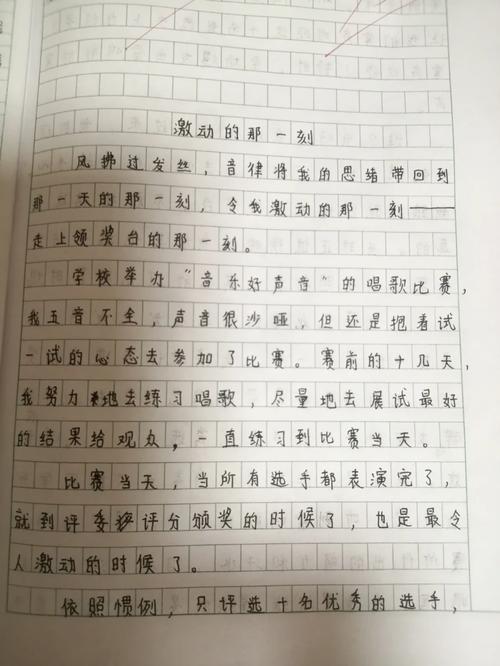 激动的那一刻
风拂过发丝，音律将我的思绪带回到
那一天的那一刻，令我激动的那一刻——
走上领奖台的那一刻。
学校举办“音乐好声音”的唱歌比赛，
我五音不全，声音很沙哑，但还是抱着试
一试的心态去参加了比赛。赛前的十几天，
我努力地去练习唱歌，尽量地去展试最好
的结果给观众，一直练习到比赛当天。
比赛当天，当所有选手都表演完了，
就到评委评分颁奖的时候了，也是最令
人激动的时候了。
依照惯例，只评选十名优秀的选手，